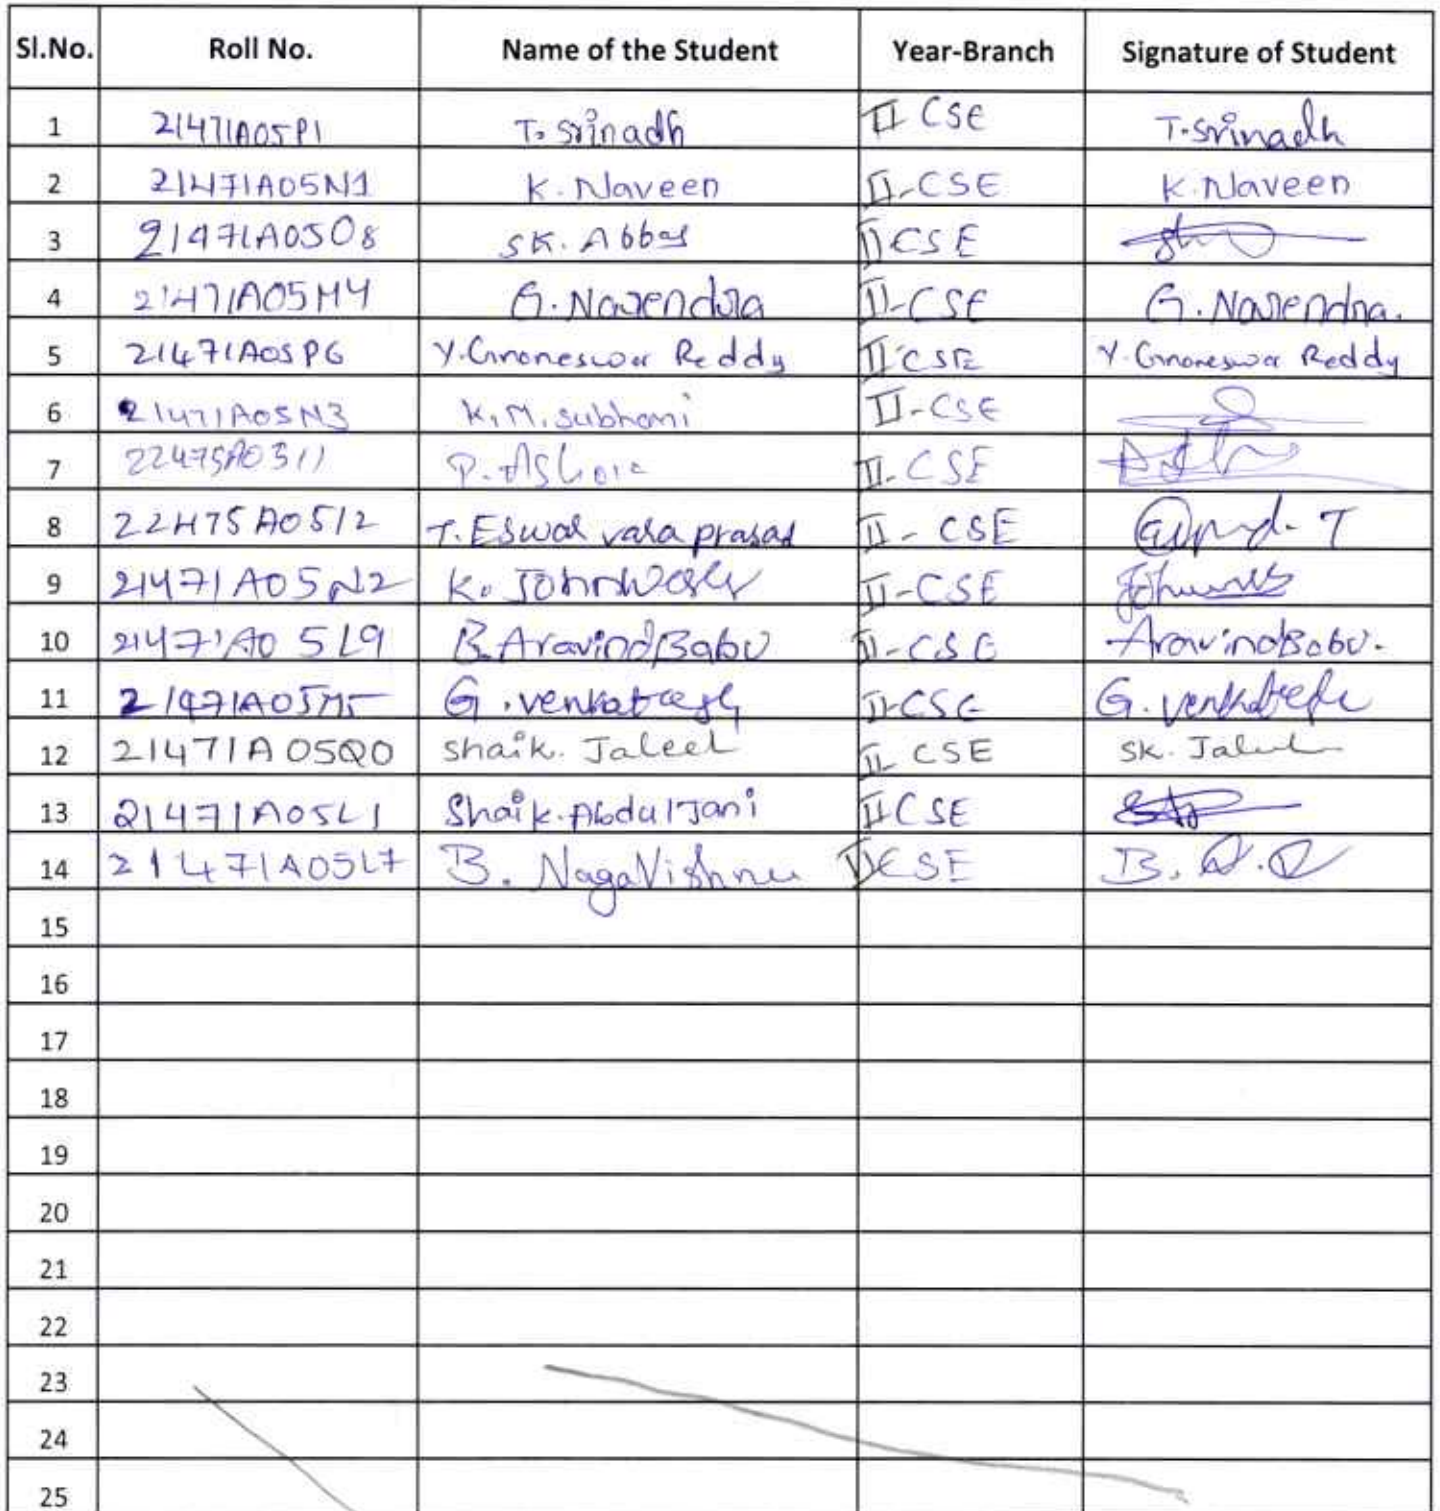 Sl.No. Roll No. Name of the Student Year-Branch Signature of Student
1 21471A05P1 T. Srinadh II CSE T. Srinadh
2 21471A05N1 K. Naveen II-CSE K. Naveen
3 21471A05O8 SK. Abbas II CSE
4 21471A05M4 G. Narendra II-CSE G. Narendra.
5 21471A05P6 Y. Gnaneswar Reddy II CSE Y. Gnaneswar Reddy
6 21471A05N3 K.M. Subhani II-CSE
7 P. II-CSE
8 22475A0512 T. Eswar vara prasad II - CSE
9 21471A05N2 K. JohnWesly II-CSE
10 21471A05L9 B. Aravind Babu II-CSE Aravind Babu.
11 21471A05M5 G. venkatesh II-CSE G. venkatesh
12 21471A05Q0 Shaik. Jaleel II CSE SK. Jaleel
13 21471A05L1 Shaik. Abdul Jani II CSE
14 21471A05L7 B. Naga Vishnu II CSE B.
15
16
17
18
19
20
21
22
23
24
25